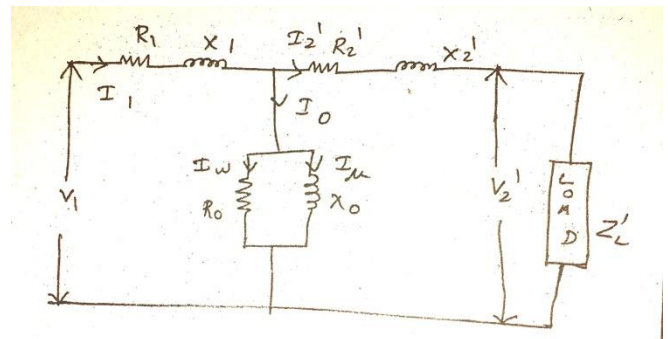 R1 X1 I2' R2' X2'
I1 I0
Iw Iμ
V1 R0 X0 V2' LOAD ZL'